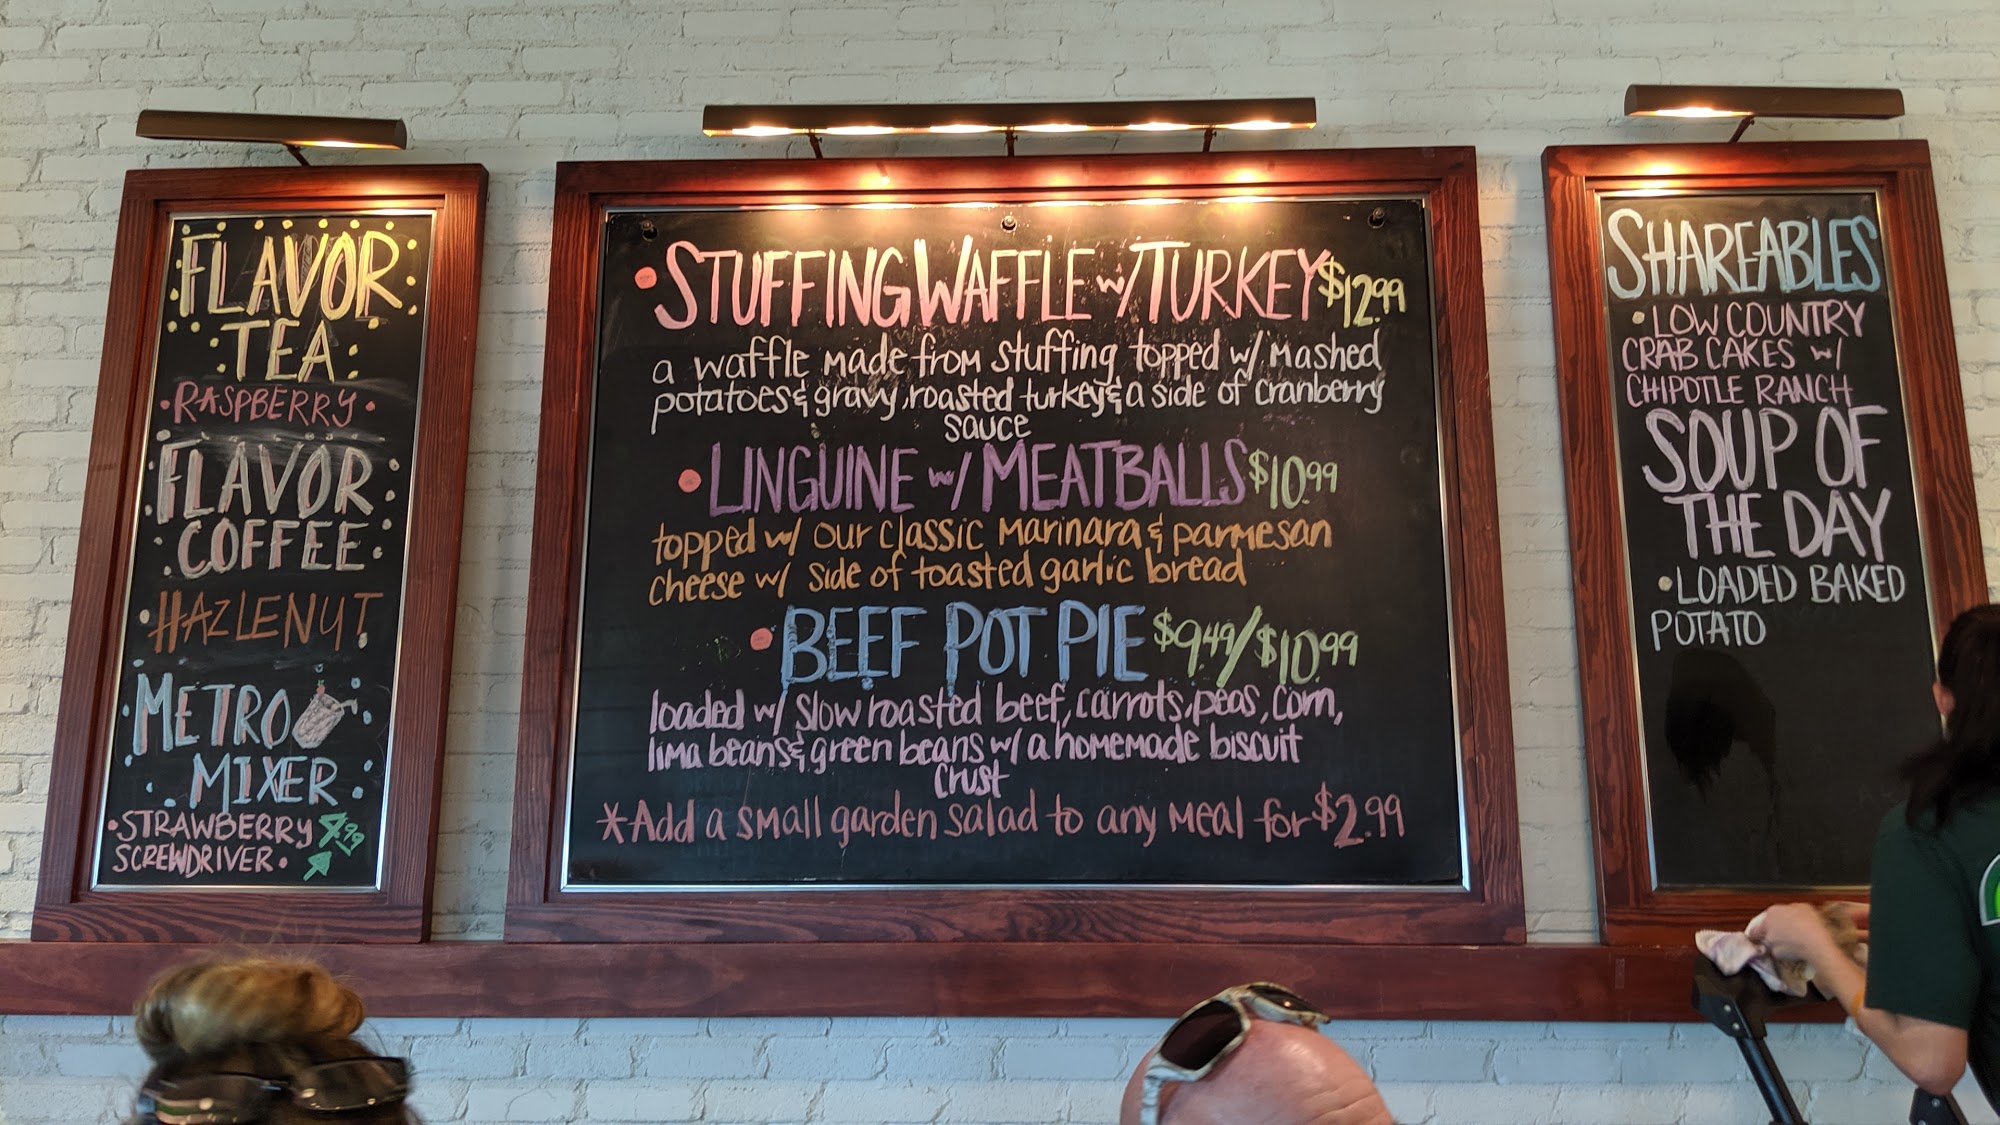 FLAVOR
TEA
• RASPBERRY •
FLAVOR
COFFEE
• HAZLENUT
METRO
MIXER
• STRAWBERRY 4.99
SCREWDRIVER •
• STUFFING WAFFLE w/ TURKEY $12.99
a waffle made from stuffing topped w/ mashed
potatoes & gravy, roasted turkey & a side of cranberry
sauce
• LINGUINE w/ MEATBALLS $10.99
topped w/ our classic marinara & parmesan
cheese w/ side of toasted garlic bread
• BEEF POT PIE $9.49/$10.99
loaded w/ slow roasted beef, carrots, peas, corn,
lima beans & green beans w/ a homemade biscuit
crust
*Add a small garden salad to any meal for $2.99
SHAREABLES
• LOW COUNTRY
CRAB CAKES w/
CHIPOTLE RANCH
SOUP OF
THE DAY
• LOADED BAKED
POTATO